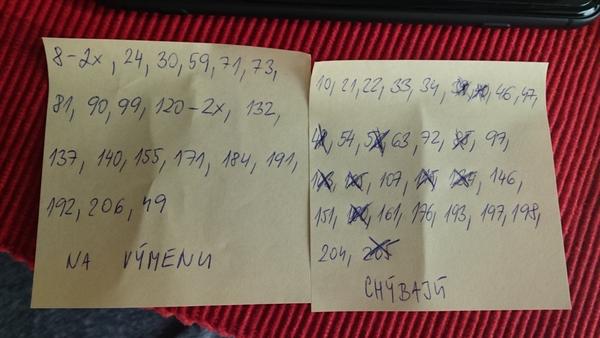 8-2x, 24, 30, 59, 71, 73,
81, 90, 99, 120-2x, 132,
137, 140, 155, 171, 184, 191,
192, 206, 49
NA VÝMENU
10, 21, 22, 33, 34, 46, 47,
54, 63, 72, 97,
107, 146,
151, 161, 176, 193, 197, 198,
204, 205
CHÝBAJÚ